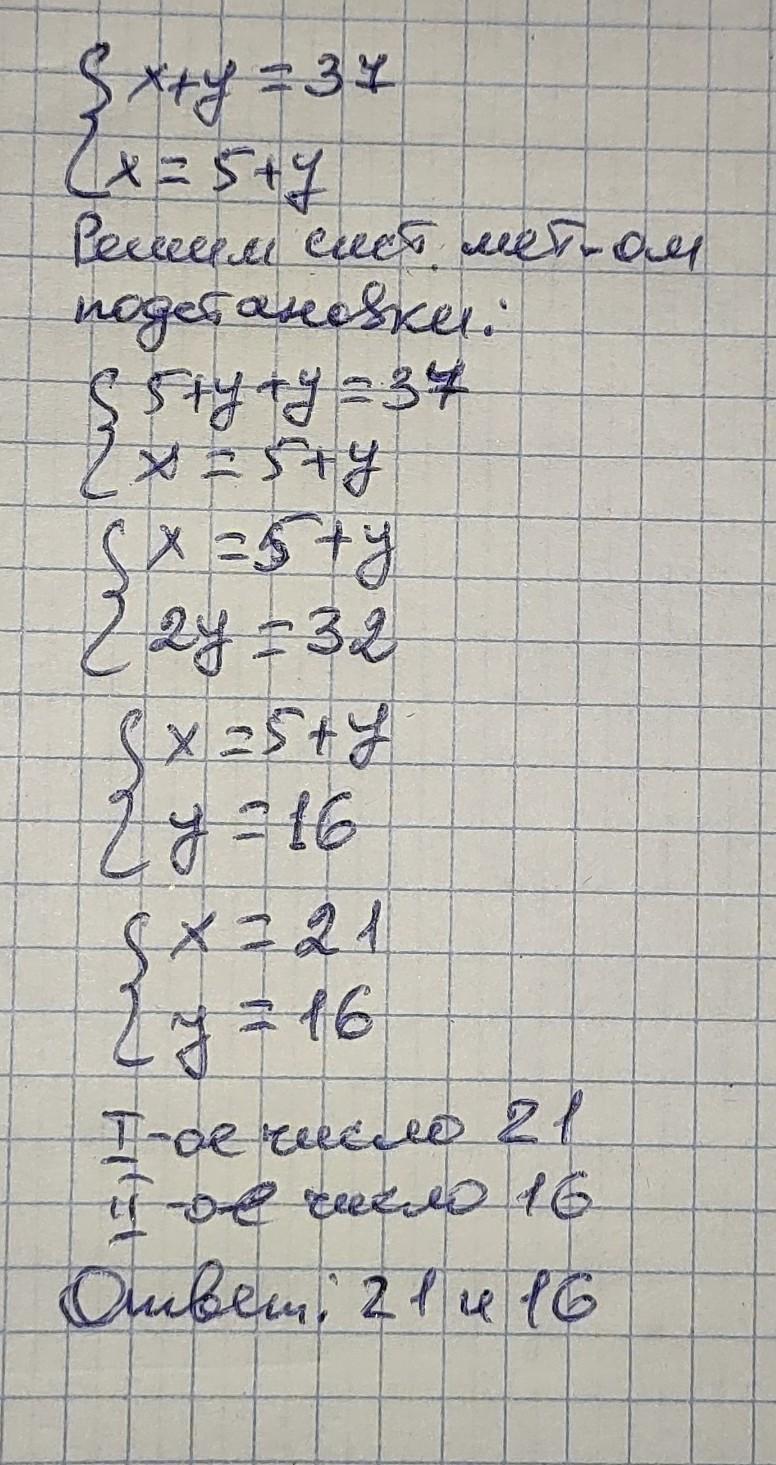 { x+y = 37
x = 5+y
Решим сист. мет-ом
подстановки:
{ 5+y+y=37
x = 5+y
{ x = 5+y
2y = 32
{ x = 5+y
y = 16
{ x = 21
y = 16
I-ое число 21
II-ое число 16
Ответ: 21 и 16